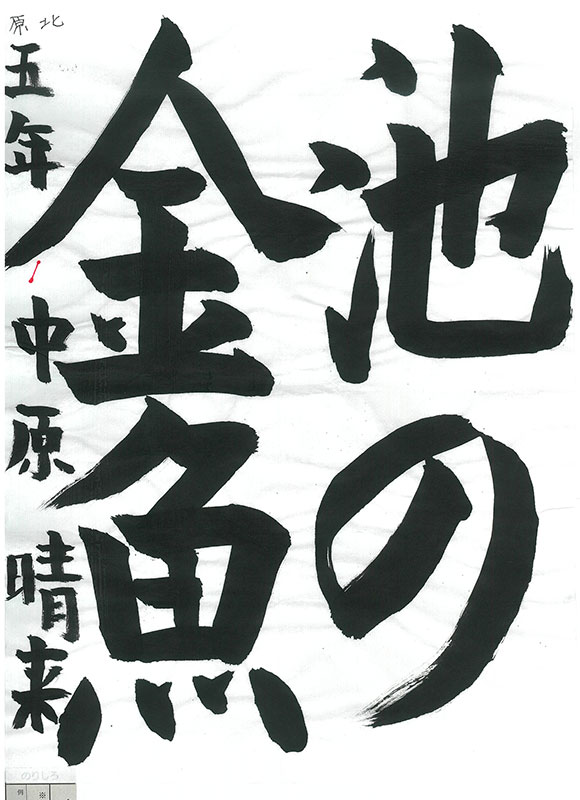 池の
金魚
五年 中原 晴来
北原
のりしろ
例
※